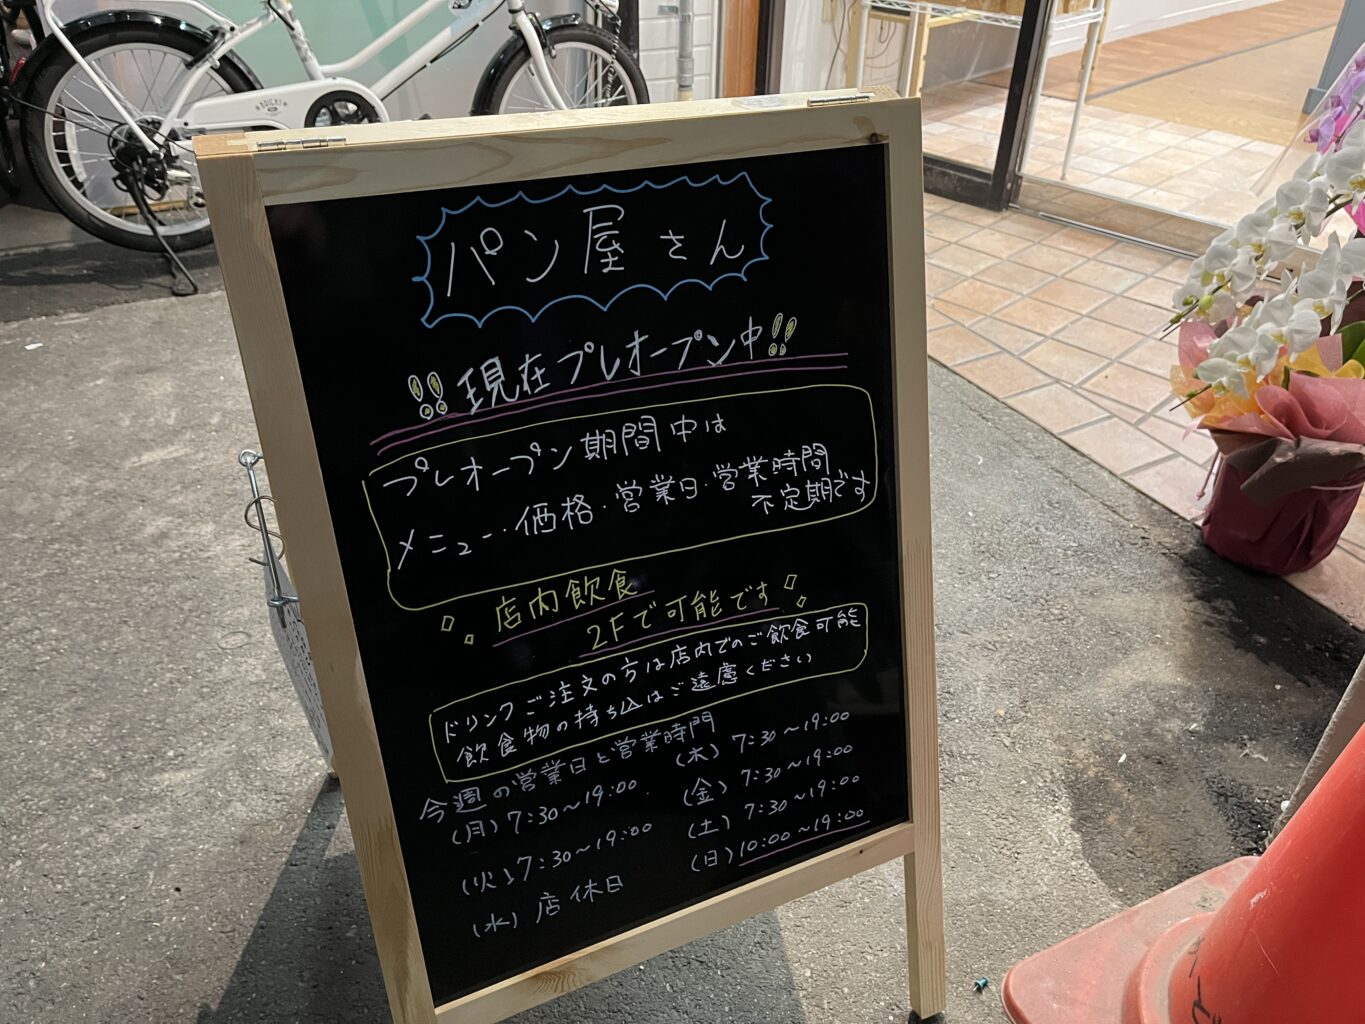 パン屋さん
!!現在プレオープン中!!
プレオープン期間中は
メニュー・価格・営業日・営業時間
不定期です
店内飲食
2Fで可能です
ドリンクご注文の方は店内でのご飲食可能
飲食物の持ち込はご遠慮ください
今週の営業日と営業時間
(月) 7:30~19:00
(火) 7:30~19:00
(水) 店休日
(木) 7:30~19:00
(金) 7:30~19:00
(土) 7:30~19:00
(日) 10:00~19:00